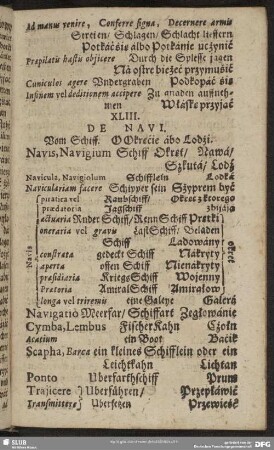 Ad manus venire, Conferre signa, Decernere armis
Streiten/ Schlagen/ Schlacht lieffern
Potkáć śię álbo Potkánie uczynić
Præpilatis hastis objicere Durch die Spiesse jagen
Ná ostre bieżeć przymuśić
Cuniculos agere Undergraben Podkopáć śię
In finem vel deditionem accipere Zu gnaden auffneh-
men W łáskę przyjąć
XLIII.
DE NAVI.
Vom Schiff. O Okręcie ábo Lodźi.
Navis, Navigium Schiff Okręt/ Nawá/
Szkutá/ Lodź
Navicula, Navigiolum Schifflein Lodká
Naviculariam facere Schipper sein Szyprem być
Navis
piratica vel Raubschiff/ Okręt ktorego
prædatoria Jagschiff
actuaria Ruder Schiff/ Renn Schiff Prętki
oneraria vel gravis Last Schiff/ Beladen
Schiff Ládowány
constrata gedeckt Schiff Nákryty
aperta offen Schiff Nienákryty
præsidiaria Kriegs Schiff Wojenny
Prætoria Amiral Schiff Amirałow
longa vel triremis eine Galeye Galerá
okręt
Navigatio Meerfar/ Schiffart Zeglowánie
Cymba, Lembus Fischer Kahn Czołn
Acatium ein Boot Bacik
Scapha, Barca ein kleines Schifflein oder ein
Leichtkahn Lichtan
Ponto Uberfarthschiff Prum
Trajicere Uberführen/ Przepłáwić
Transmittere Ubersetzen Przewieść
SLUB